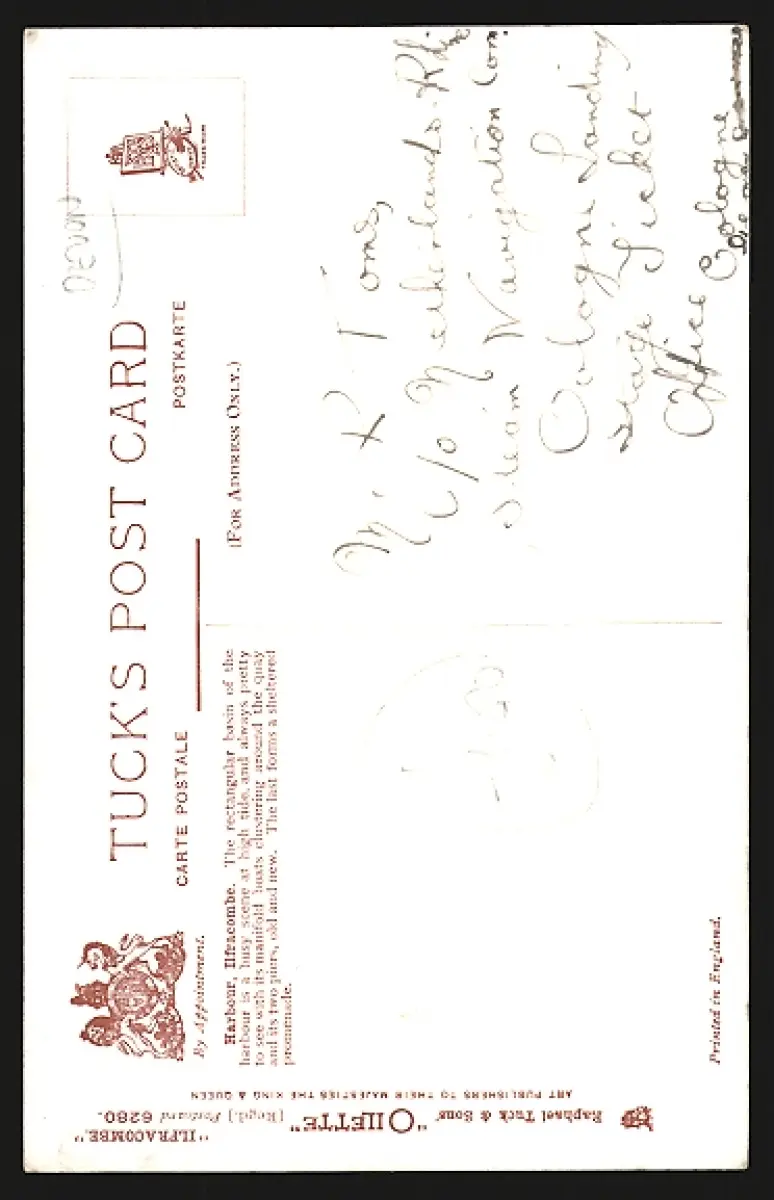 DEVON
TUCK'S POST CARD
CARTE POSTALE
POSTKARTE
(FOR ADDRESS ONLY.)
By Appointment.
Harbour, Ilfracombe. The rectangular basin of the
harbour is a busy scene at high tide, and always pretty
to see with its manifold boats clustering around the quay
and its two piers, old and new. The last forms a sheltered
promenade.
R Toms
C/o Netherlands
Steam Navigation Com
Cologne Landing
stage Ticket
Office Cologne
Raphael Tuck & Sons' "OILETTE" (Regd.) Postcard 6280.
"ILFRACOMBE."
ART PUBLISHERS TO THEIR MAJESTIES THE KING & QUEEN
Printed in England.